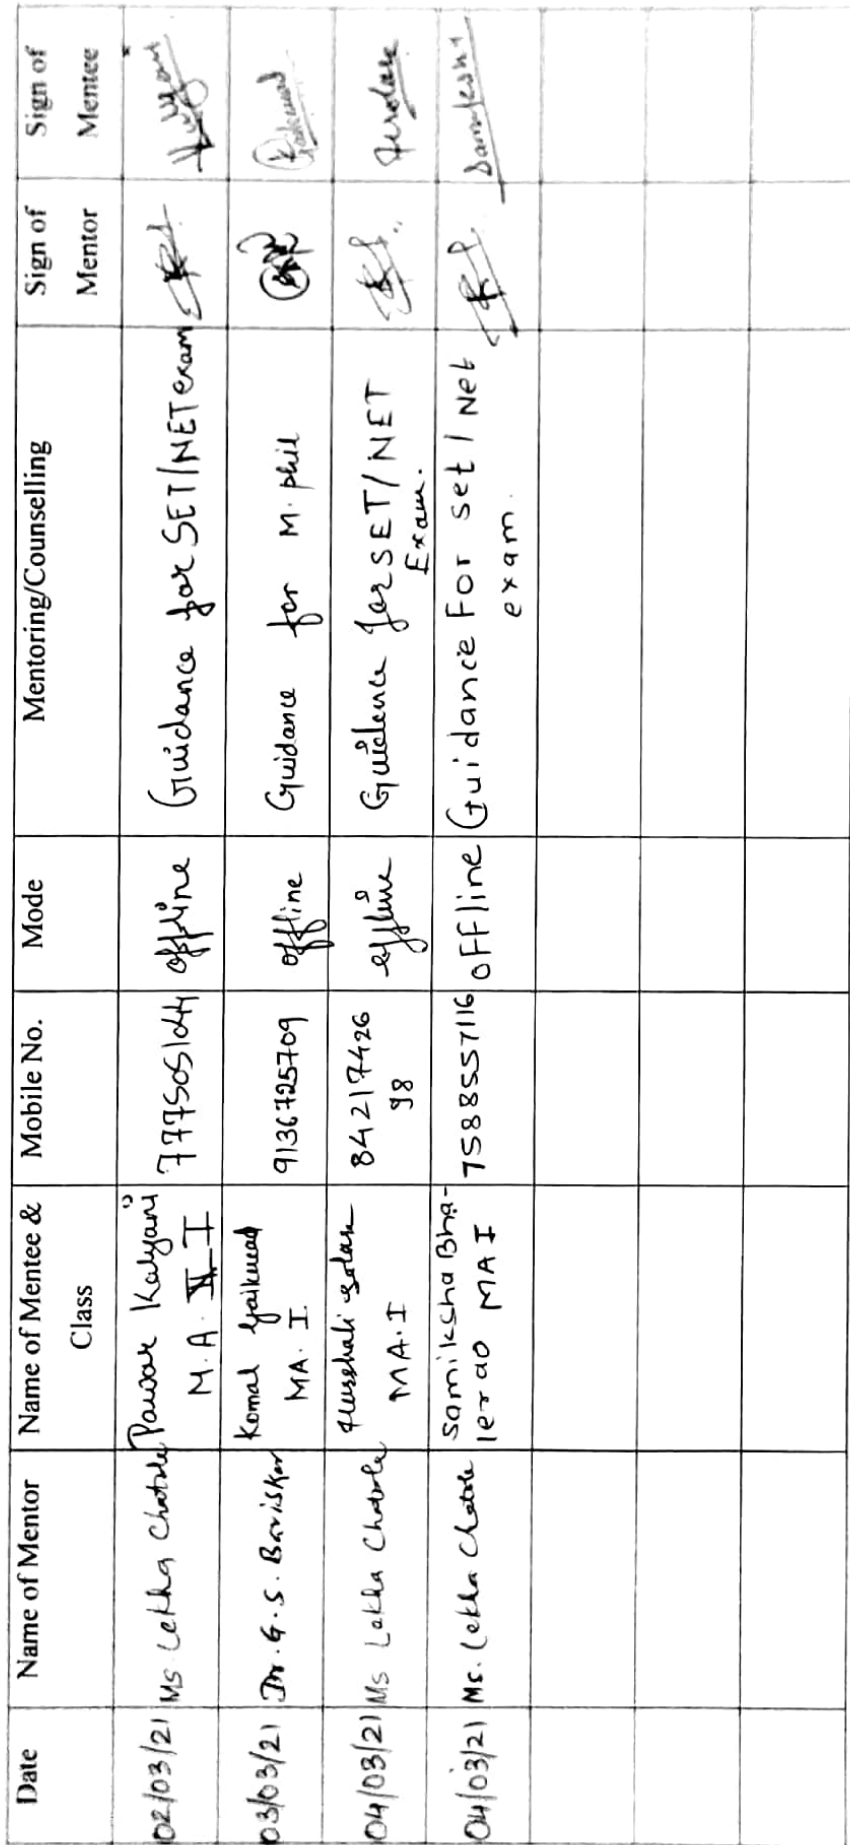 Date Name of Mentor Name of Mentee & Class Mobile No. Mode Mentoring/Counselling Sign of Mentor Sign of Mentee
02/03/21 Ms. Lekha Chatole Pawar Kalyani 7775051044 offline Guidance for SET/NET exam
M.A. I
03/03/21 Dr. G. S. Baviskar Komal Gaikwad 9136725709 offline Guidance for M. phil
MA. I
04/03/21 Ms Lekha Chatole 84217426 offline Guidence for SET/NET
MA. I 98 Exam.
04/03/21 Ms. Lekha Chatole Samiksha Bha- 7588557116 OFFline Guidance For set / Net
lerao MA I exam.